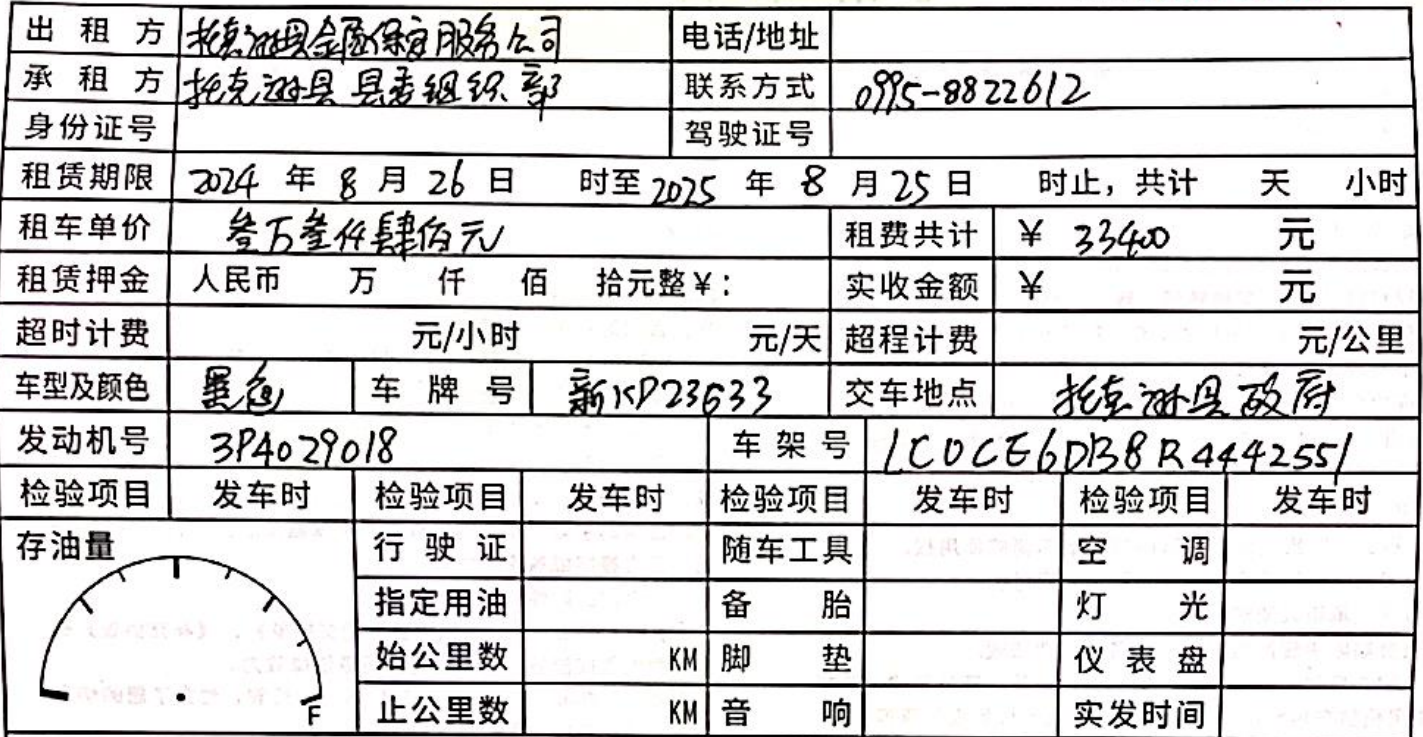 出租方 托克逊县金盾保安服务公司 电话/地址
承租方 托克逊县县委组织部 联系方式 0995-8822612
身份证号 驾驶证号
租赁期限 2024年8月26日 时至2025年8月25日 时止，共计 天 小时
租车单价 叁万叁仟肆佰元 租费共计 ¥33400元
租赁押金 人民币 万 仟 佰 拾元整¥： 实收金额 ¥ 元
超时计费 元/小时 元/天 超程计费 元/公里
车型及颜色 黑色 车牌号 交车地点 托克逊县政府
发动机号 3P4029018 车架号 LC0CE6DB8R4442551
检验项目 发车时 检验项目 发车时 检验项目 发车时 检验项目 发车时
存油量 行驶证 随车工具 空调
指定用油 备胎 灯光
始公里数 KM 脚垫 仪表盘
F 止公里数 KM 音响 实发时间